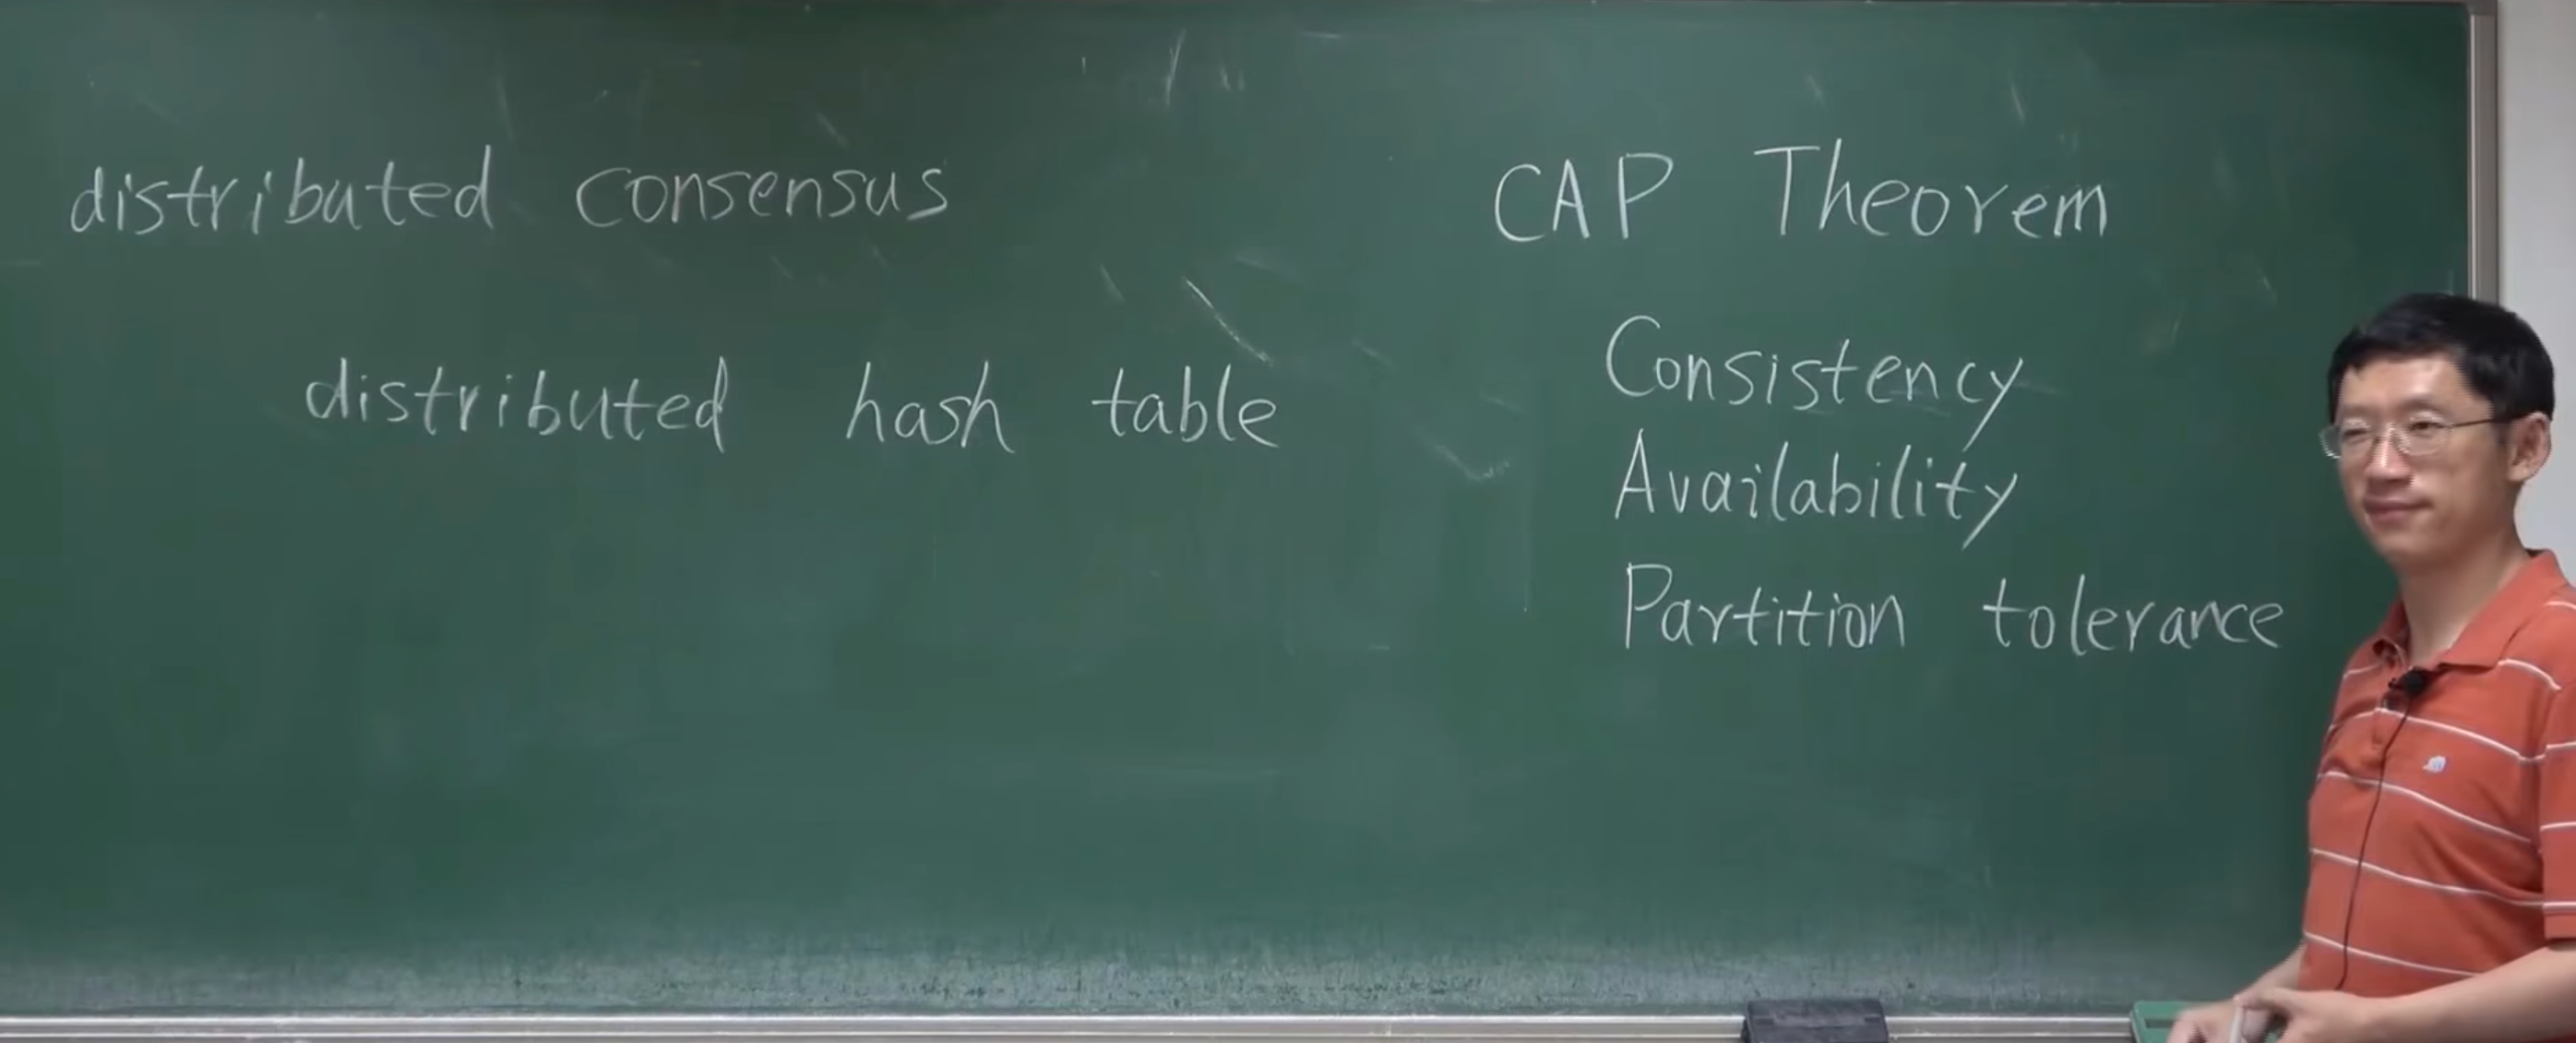 distributed consensus
distributed hash table
CAP Theorem
Consistency
Availability
Partition tolerance